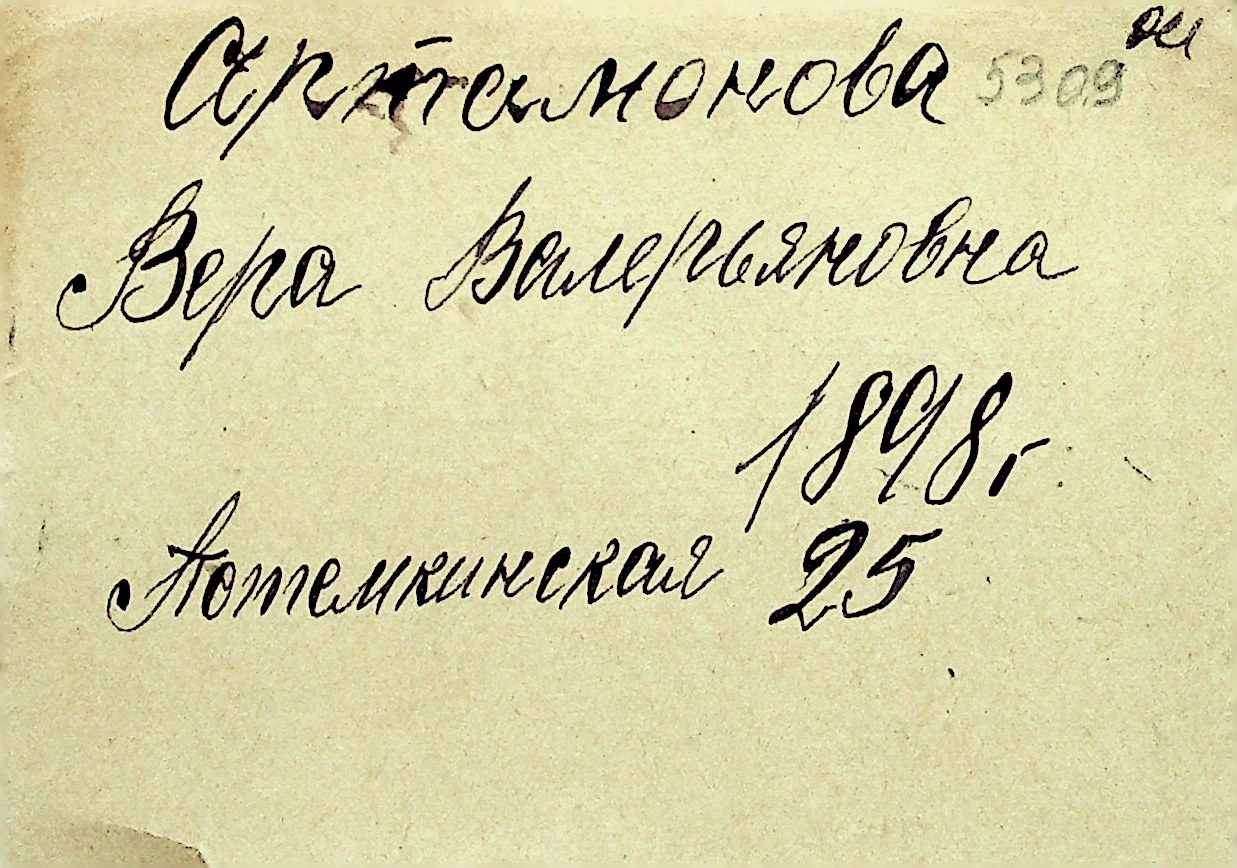 Артамонова 5309
Вера Валерьяновна
1898 г.
Потемкинская 25